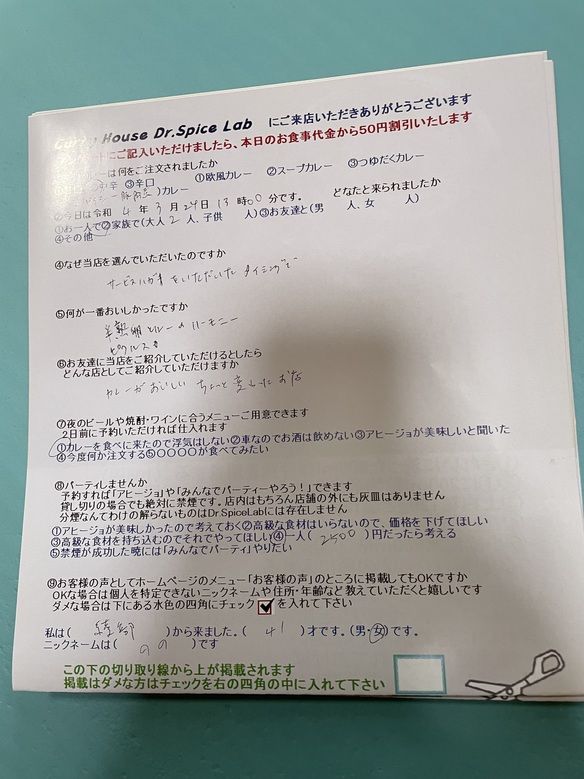 Curry House Dr.Spice Lab にご来店いただきありがとうございます
アンケートにご記入いただけましたら、本日のお食事代金から50円割引いたします
カレーは何をご注文されましたか
③辛口 ①欧風カレー ②スープカレー ③つゆだくカレー
)カレー
②今日は令和 4 年 3 月 29 日 13 時 00 分です。 どなたと来られましたか
①お一人で ②家族で(大人 2 人、子供 人) ③お友達と(男 人、女 人)
④その他
④なぜ当店を選んでいただいたのですか
サービスハガキをいただいたタイミングで
⑤何が一番おいしかったですか
半熟卵とルーのハーモニー
ピクルス
⑥お友達に当店をご紹介していただけるとしたら
どんな店としてご紹介していただけますか
カレーがおいしい ちょっと変わったお店
⑦夜のビールや焼酎・ワインに合うメニューご用意できます
2日前に予約いただければ仕入れます
①カレーを食べに来たので浮気はしない ②車なのでお酒は飲めない ③アヒージョが美味しいと聞いた
④今度何か注文する ⑤○○○○が食べてみたい
⑧パーティしませんか
予約すれば「アヒージョ」や「みんなでパーティーやろう!」できます
貸し切りの場合でも絶対に禁煙です。店内はもちろん店舗の外にも灰皿はありません
分煙なんてわけの解らないものはDr.SpiceLabには存在しません
①アヒージョが美味しかったので考えておく ②高級な食材はいらないので、価格を下げてほしい
③高級な食材を持ち込むのでそれでやってほしい ④一人( 2500 )円だったら考える
⑤禁煙が成功した暁には「みんなでパーティ」やりたい
⑨お客様の声としてホームページのメニュー「お客様の声」のところに掲載してもOKですか
OKな場合は個人を特定できないニックネームや住所・年齢など教えていただくと嬉しいです
ダメな場合は下にある水色の四角にチェック を入れて下さい
私は( 綾部 )から来ました。( 41 )才です。(男・女)です。
ニックネームは( のの )です
この下の切り取り線から上が掲載されます
掲載はダメな方はチェックを右の四角の中に入れて下さい